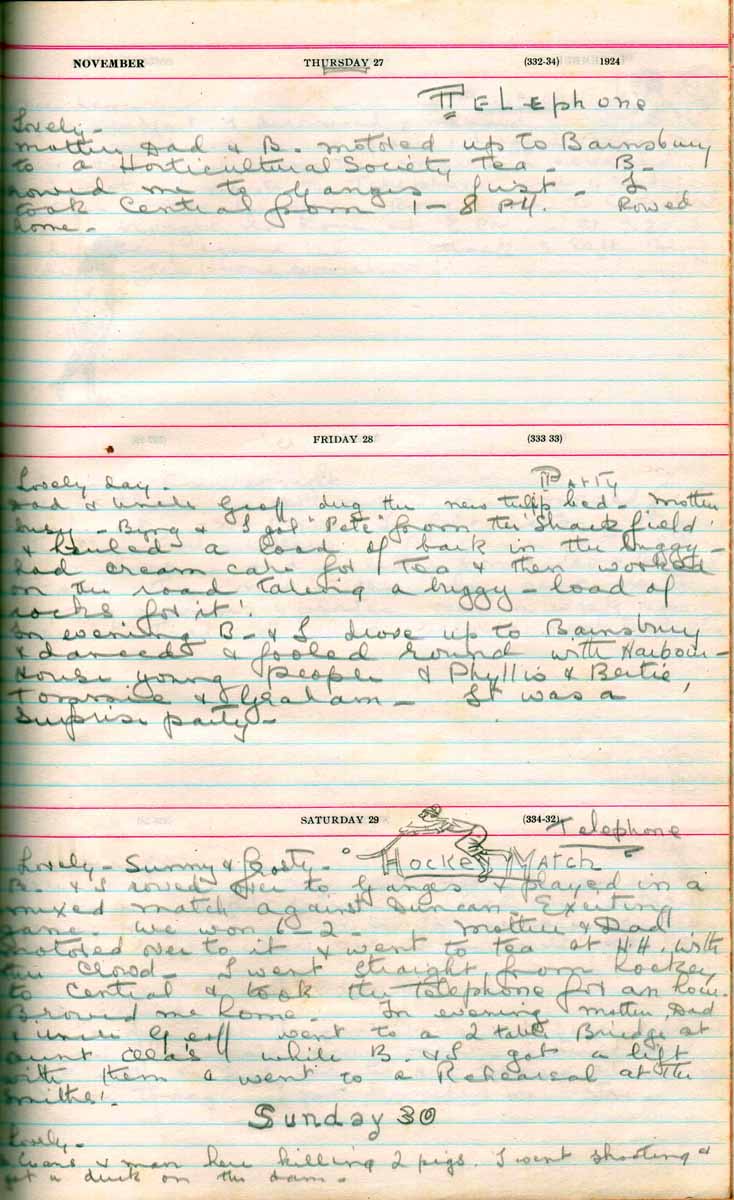 NOVEMBER THURSDAY 27 (332-34) 1924
TELEphone
Lovely -
Mother Dad & B. motored up to Barnsbury
to a Horticultural Society tea - B -
rowed me to Ganges first - I
took Central from 1 - 8 P.M. Rowed
home -
FRIDAY 28 (333 33)
Lovely day - PARTY
Dad & Uncle Geoff dug the new tulip bed - Mother
busy - Byng & I got "Pete" from the 'Shack field'
& hauled a load of bark in the buggy -
had cream cake for tea & then worked
on the road taking a buggy - load of
rocks for it!
In evening B - & I drove up to Barnsbury
& danced & fooled round with Harbour -
House young people & Phyllis & Bertie,
& Graham - It was a
surprise party -
SATURDAY 29 (334-32) Telephone
Lovely - Sunny & frosty - HOCKEY MATCH
B. & I rowed over to Ganges & played in a
mixed match against Duncan. Exciting
game. We won 6 - 2. Mother & Dad
motored over to it & went to tea at H.H. with
the crowd - I went straight from hockey
to Central & took the Telephone for an hour.
B. rowed me home. In evening mother, Dad
& Uncle Geoff went to a 2 table Bridge at
Aunt Cela's while B. & I got a lift
with them & went to a Rehearsal at the
Smiths'.
Sunday 30
Lovely -
Evans & man here killing 2 pigs. I went shooting &
got a duck on the dam -